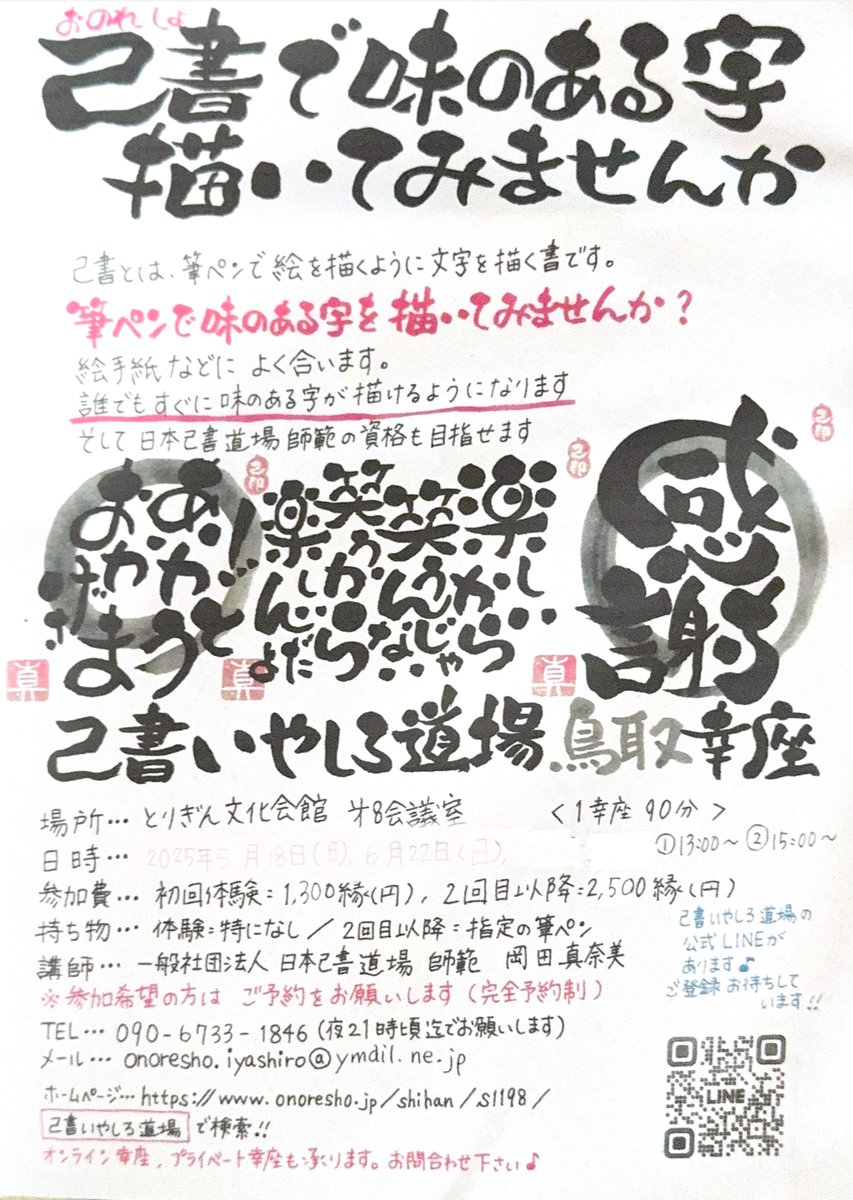 おのれしょ
己書で味のある字
描いてみませんか
己書とは、筆ペンで絵を描くように文字を描く書です。
筆ペンで味のある字を描いてみませんか?
絵手紙などによく合います。
誰でもすぐに味のある字が描けるようになります
そして日本己書道場師範の資格も目指せます
己印
己印
己印
感謝
楽しいから
笑うんじゃない
笑うから
楽しいんだよ
ありがとう
おかげさま
真
真
真
己書いやしろ道場 鳥取幸座
場所… とりぎん文化会館 第8会議室 <1幸座 90分>
日時… 2025年5月18日(日), 6月22日(日), ①13:00〜 ②15:00〜
参加費… 初回体験=1,300縁(円), 2回目以降=2,500縁(円)
持ち物… 体験=特になし/2回目以降=指定の筆ペン
講師… 一般社団法人 日本己書道場 師範 岡田真奈美
※参加希望の方は ご予約をお願いします(完全予約制)
TEL… 090-6733-1846(夜21時頃迄でお願いします)
メール… onoresho.iyashiro@ymdil.ne.jp
ホームページ… https://www.onoresho.jp/shihan/s1198/
己書いやしろ道場 で検索!!
オンライン幸座, プライベート幸座も承ります。お問合わせ下さい♪
己書いやしろ道場の
公式LINEが
あります♪
ご登録お待ちして
います!!
LINE